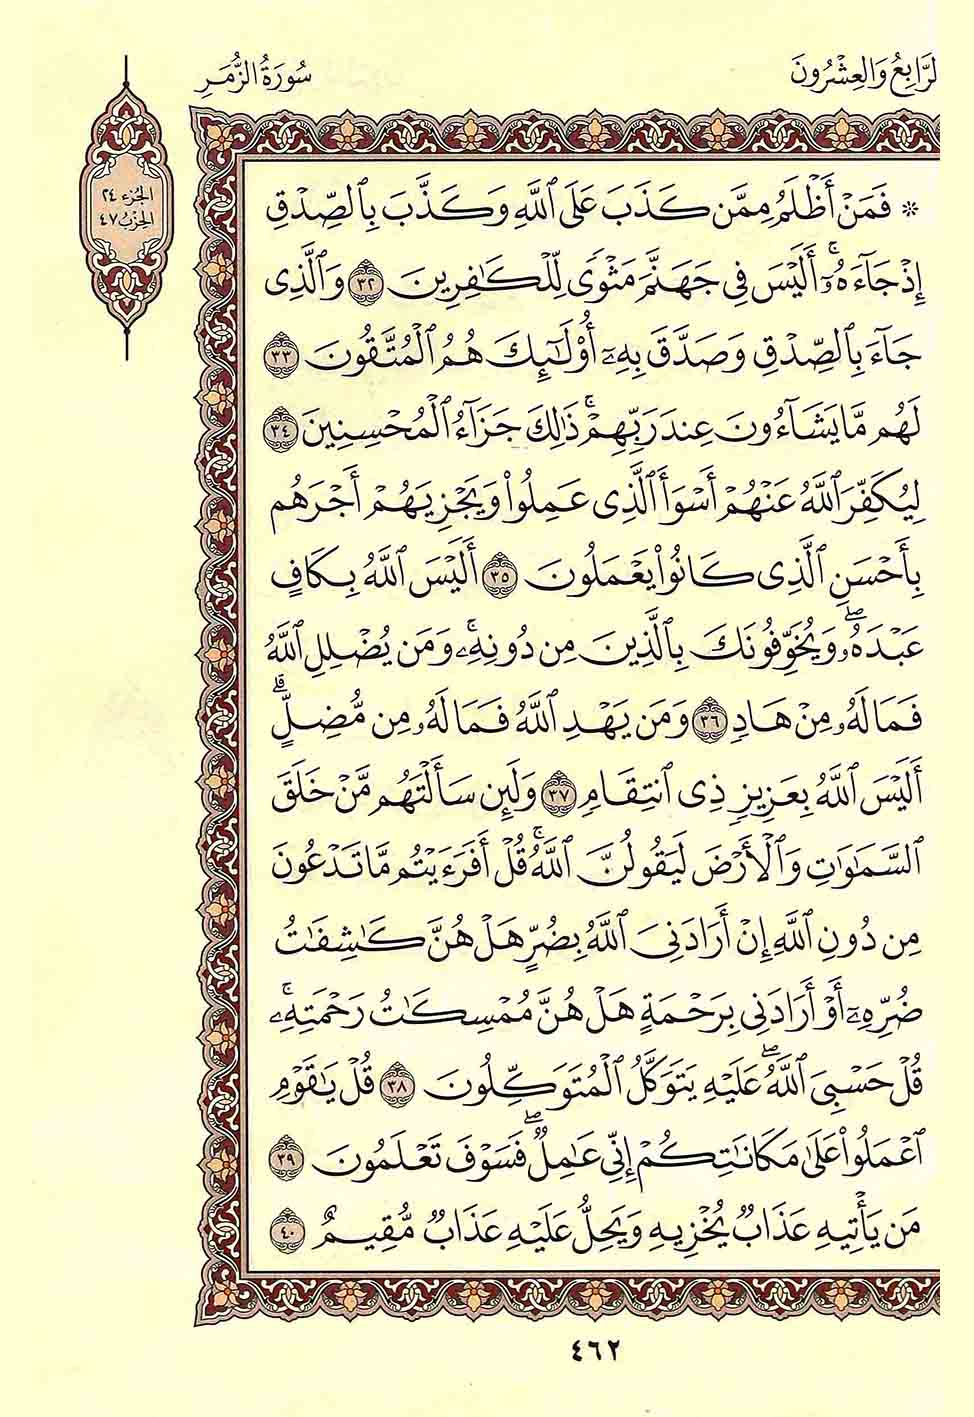 لرَّابِعُ وَالعِشْرُونَ
سُورَةُ الزُّمَرِ
الجُزء ٢٤
الحِزبُ ٤٧
۞ فَمَنْ أَظْلَمُ مِمَّن كَذَبَ عَلَى ٱللَّهِ وَكَذَّبَ بِٱلصِّدْقِ
إِذْ جَآءَهُۥٓۚ أَلَيْسَ فِى جَهَنَّمَ مَثْوًى لِّلْكَٰفِرِينَ ٣٢ وَٱلَّذِى
جَآءَ بِٱلصِّدْقِ وَصَدَّقَ بِهِۦٓ أُوْلَٰٓئِكَ هُمُ ٱلْمُتَّقُونَ ٣٣
لَهُم مَّا يَشَآءُونَ عِندَ رَبِّهِمْۚ ذَٰلِكَ جَزَآءُ ٱلْمُحْسِنِينَ ٣٤
لِيُكَفِّرَ ٱللَّهُ عَنْهُمْ أَسْوَأَ ٱلَّذِى عَمِلُوا۟ وَيَجْزِيَهُمْ أَجْرَهُم
بِأَحْسَنِ ٱلَّذِى كَانُوا۟ يَعْمَلُونَ ٣٥ أَلَيْسَ ٱللَّهُ بِكَافٍ
عَبْدَهُۥۖ وَيُخَوِّفُونَكَ بِٱلَّذِينَ مِن دُونِهِۦۚ وَمَن يُضْلِلِ ٱللَّهُ
فَمَا لَهُۥ مِنْ هَادٍ ٣٦ وَمَن يَهْدِ ٱللَّهُ فَمَا لَهُۥ مِن مُّضِلٍّۗ
أَلَيْسَ ٱللَّهُ بِعَزِيزٍ ذِى ٱنتِقَامٍ ٣٧ وَلَئِن سَأَلْتَهُم مَّنْ خَلَقَ
ٱلسَّمَٰوَٰتِ وَٱلْأَرْضَ لَيَقُولُنَّ ٱللَّهُۚ قُلْ أَفَرَءَيْتُم مَّا تَدْعُونَ
مِن دُونِ ٱللَّهِ إِنْ أَرَادَنِىَ ٱللَّهُ بِضُرٍّ هَلْ هُنَّ كَٰشِفَٰتُ
ضُرِّهِۦٓ أَوْ أَرَادَنِى بِرَحْمَةٍ هَلْ هُنَّ مُمْسِكَٰتُ رَحْمَتِهِۦۚ
قُلْ حَسْبِىَ ٱللَّهُۖ عَلَيْهِ يَتَوَكَّلُ ٱلْمُتَوَكِّلُونَ ٣٨ قُلْ يَٰقَوْمِ
ٱعْمَلُوا۟ عَلَىٰ مَكَانَٰتِكُمْ إِنِّى عَٰمِلٌۖ فَسَوْفَ تَعْلَمُونَ ٣٩
مَن يَأْتِيهِ عَذَابٌ يُخْزِيهِ وَيَحِلُّ عَلَيْهِ عَذَابٌ مُّقِيمٌ ٤٠
٤٦٢